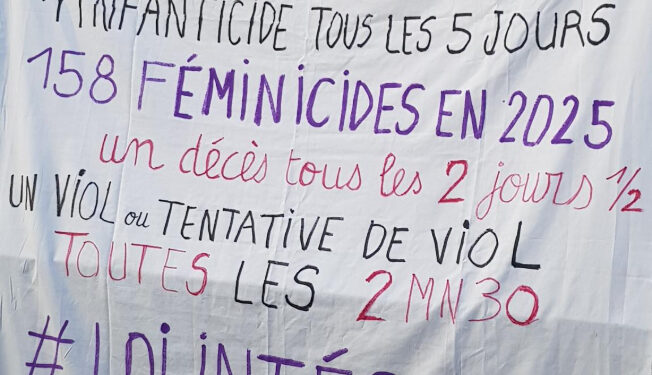 1 INFANTICIDE TOUS LES 5 JOURS
158 FÉMINICIDES EN 2025
un décès tous les 2 jours 1/2
UN VIOL ou TENTATIVE DE VIOL
TOUTES LES 2 MN 30